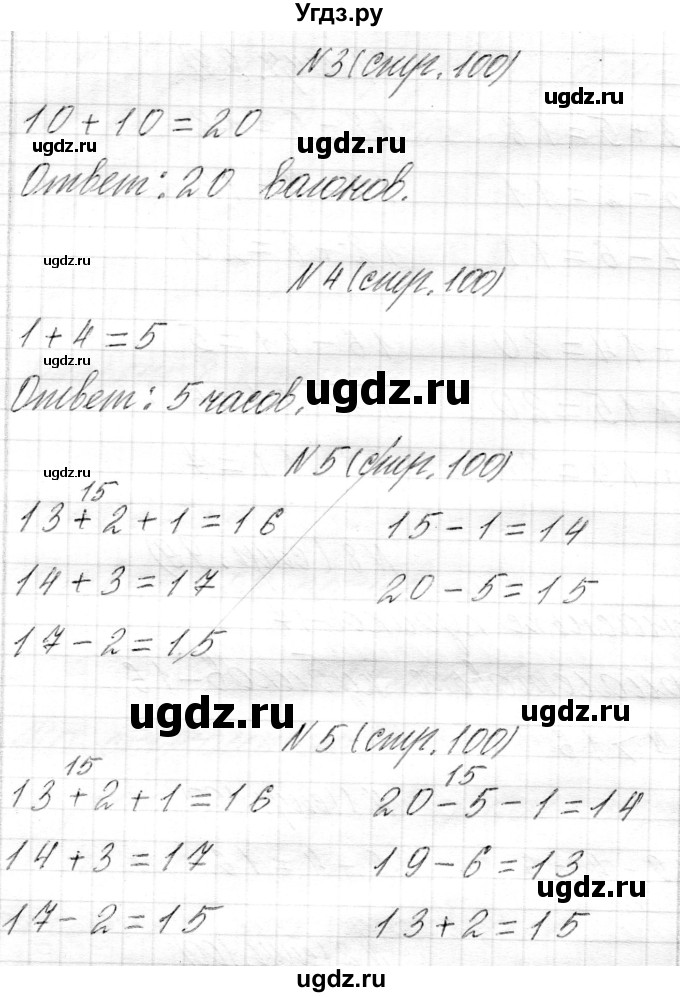 Угдз.ру
N3 (стр. 100)
ugdz.ru
10 + 10 = 20
ugdz.ru ugdz.ru
Ответ: 20 вагонов.
ugdz.ru
N4 (стр. 100)
1 + 4 = 5
ugdz.ru
ugdz.ru
Ответ: 5 часов.
N5 (стр. 100)
ugdz.ru
15
13 + 2 + 1 = 16 15 - 1 = 14
14 + 3 = 17 20 - 5 = 15
17 - 2 = 15
ugdz.ru ugdz.ru
N5 (стр. 100)
15 15
13 + 2 + 1 = 16 20 - 5 - 1 = 14
14 + 3 = 17 19 - 6 = 13
ugdz.ru
17 - 2 = 15 13 + 2 = 15
ugdz.ru